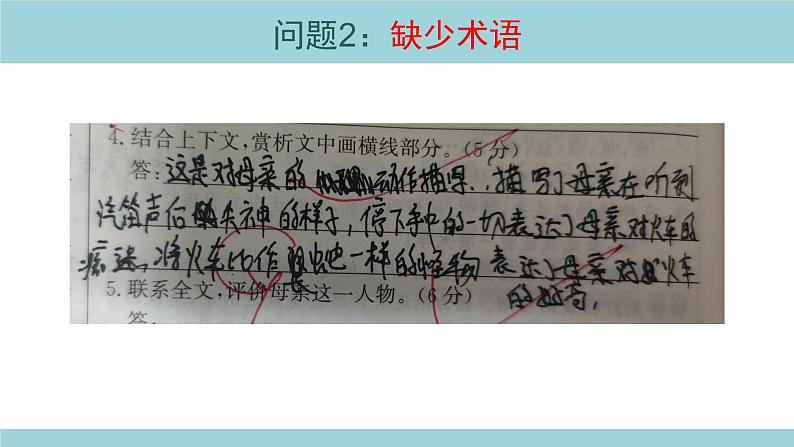 问题2：缺少术语
4.结合上下文,赏析文中画横线部分。(5分)
答:这是对母亲的动作描写,描写了母亲在听到
汽笛声后失神的样子,停下手中的一切表达了母亲对火车的
痴迷,将火车比作昆虫一样的怪物表达了母亲对火车
的好奇,
5.联系全文,评价母亲这一人物。(6分)
答: